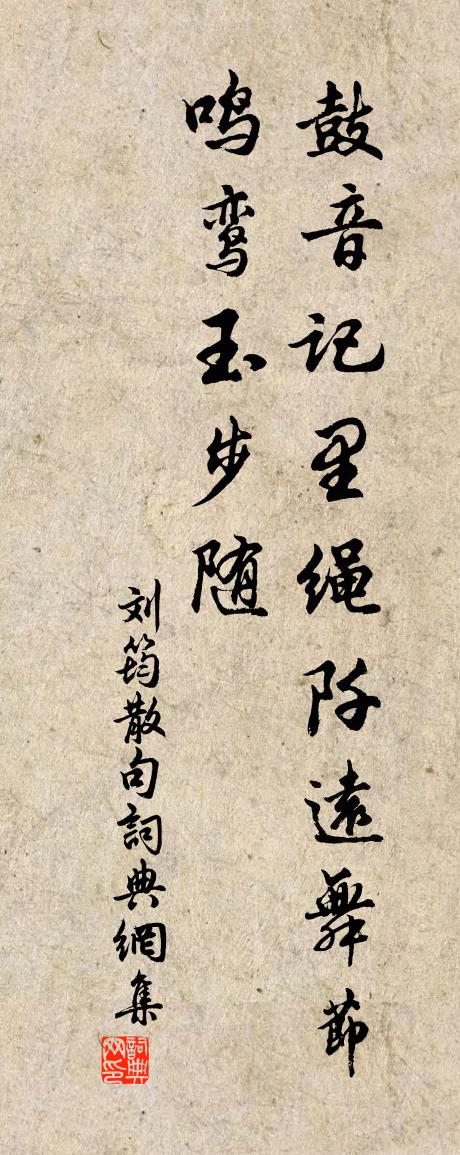 鼓音记里绳阡远舞节
鸣鸾玉步随
刘筠散句詞典網集
詞典网印